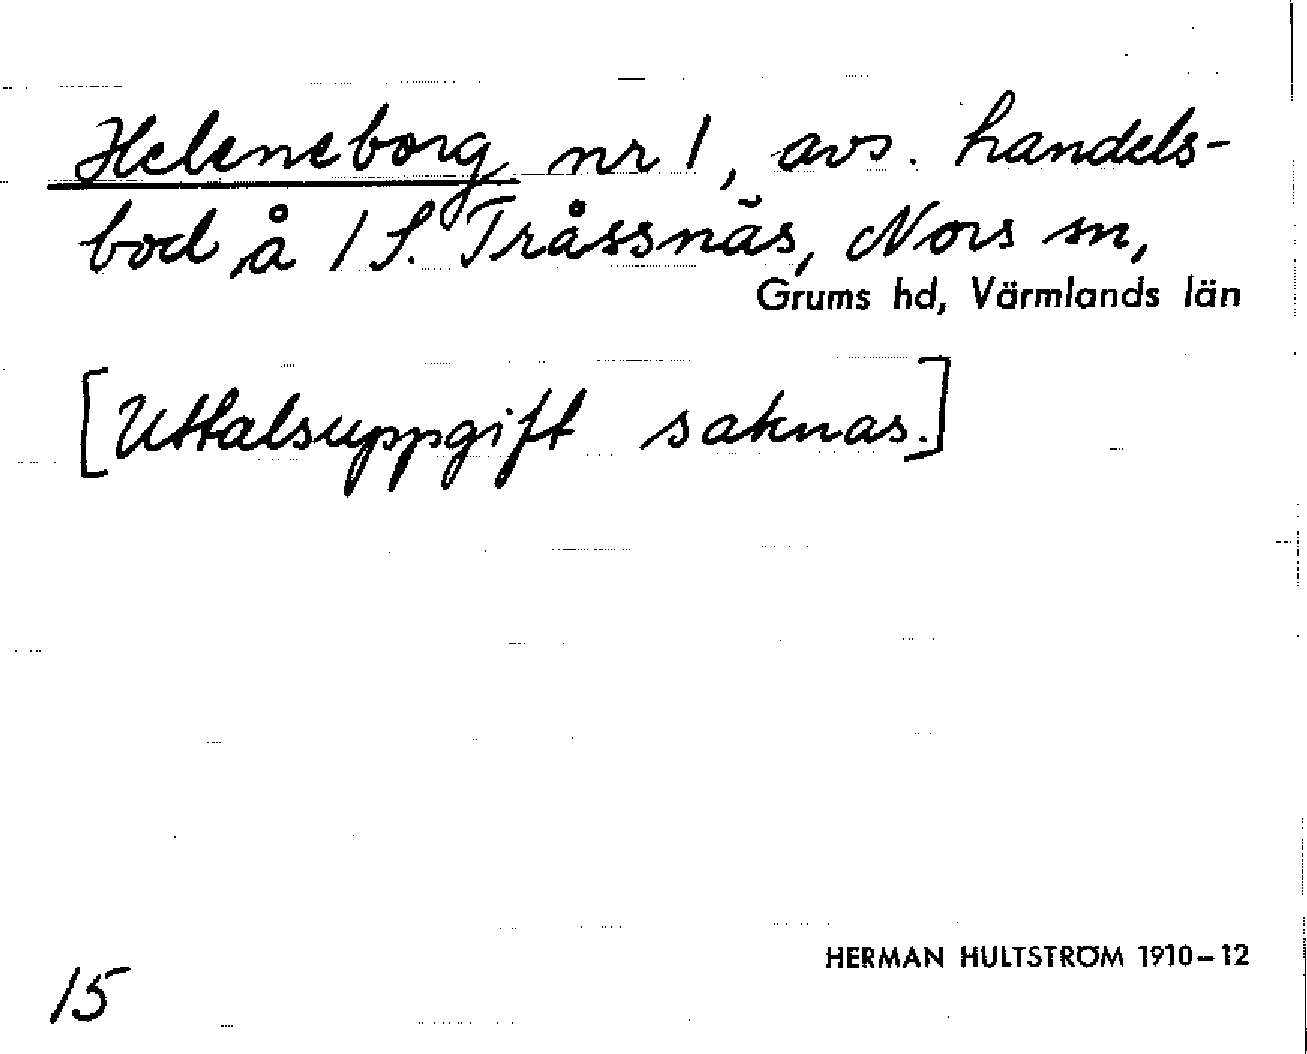 Heleneborg nr 1, avs. handels-
bod å 1 S. Tråssnäs, Nors sn,
Grums hd, Värmlands län
[Uttalsuppgift saknas.]
HERMAN HULTSTRÖM 1910–12
15